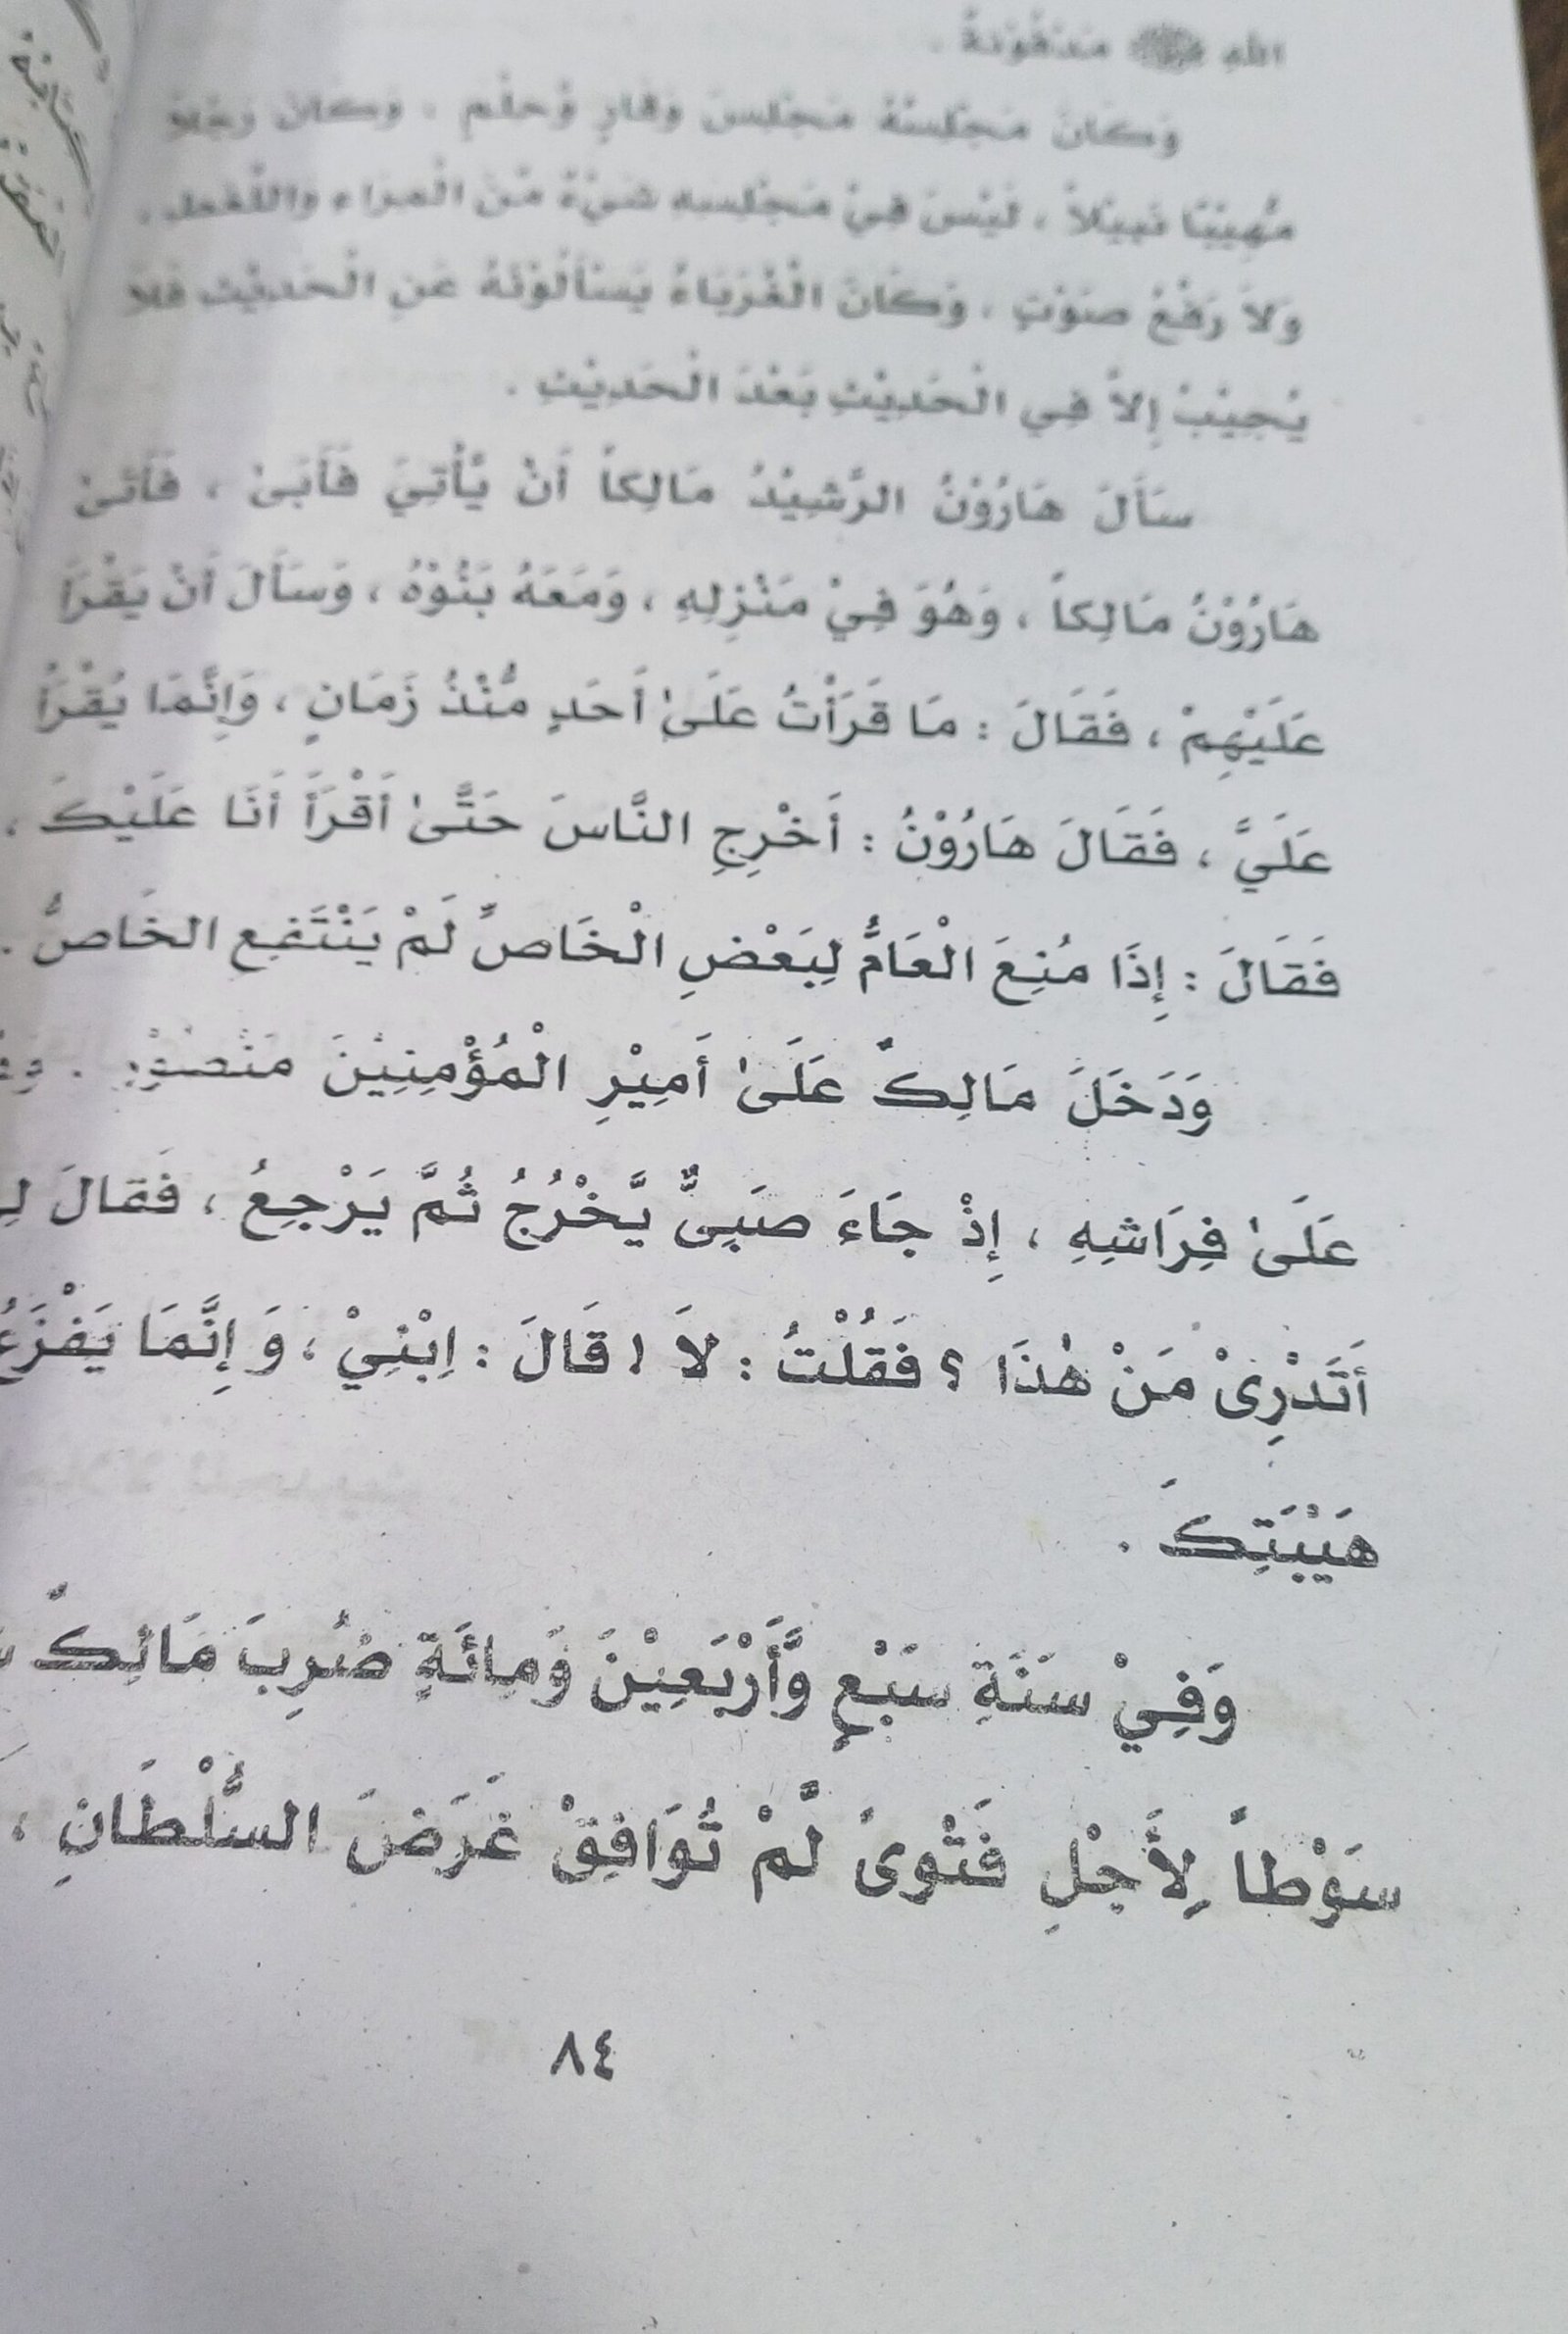 اللهِ ﷺ مَدْفُوْنَةٌ .
وَكَانَ مَجْلِسُهُ مَجْلِسَ وَقَارٍ وَّحِلْمٍ ، وَكَانَ رَجُلاً
مَّهِيْبًا نَبِيْلاً ، لَيْسَ فِيْ مَجْلِسِهِ شَيْءٌ مِّنَ الْمِرَاءِ وَاللَّغَطِ ،
وَلاَ رَفْعُ صَوْتٍ ، وَكَانَ الْغُرَبَاءُ يَسْأَلُوْنَهُ عَنِ الْحَدِيْثِ فَلاَ
يُجِيْبُ إِلاَّ فِي الْحَدِيْثِ بَعْدَ الْحَدِيْثِ .
سَأَلَ هَارُوْنُ الرَّشِيْدُ مَالِكاً أَنْ يَّأْتِيَ فَأَبَىٰ ، فَأَتَىٰ
هَارُوْنُ مَالِكاً ، وَهُوَ فِيْ مَنْزِلِهِ ، وَمَعَهُ بَنُوْهُ ، وَسَأَلَ أَنْ يَقْرَأَ
عَلَيْهِمْ ، فَقَالَ : مَا قَرَأْتُ عَلَىٰ أَحَدٍ مُّنْذُ زَمَانٍ ، وَإِنَّمَا يُقْرَأُ
عَلَيَّ ، فَقَالَ هَارُوْنُ : أَخْرِجِ النَّاسَ حَتَّىٰ أَقْرَأَ أَنَا عَلَيْكَ ،
فَقَالَ : إِذَا مُنِعَ الْعَامُّ لِبَعْضِ الْخَاصِّ لَمْ يَنْتَفِعِ الخَاصُّ .
وَدَخَلَ مَالِكٌ عَلَىٰ أَمِيْرِ الْمُؤْمِنِيْنَ مَنْصُوْرٍ .
عَلَىٰ فِرَاشِهِ ، إِذْ جَاءَ صَبِىٌّ يَّخْرُجُ ثُمَّ يَرْجِعُ ، فَقالَ لِ
أَتَدْرِىْ مَنْ هٰذَا ؟ فَقُلْتُ : لاَ ! قَالَ : اِبْنِيْ ، وَ إِنَّمَا يَفْزَعُ
هَيْبَتِكَ .
وَفِيْ سَنَةِ سَبْعٍ وَّأَرْبَعِيْنَ وَمِائَةٍ ضُرِبَ مَالِكٌ
سَوْطاً لِأَجْلِ فَتْوىً لَّمْ تُوَافِقْ غَرَضَ السُّلْطَانِ ،
٨٤